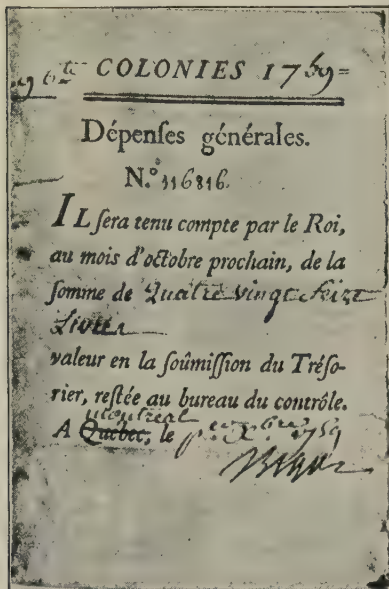 96lt COLONIES 1759=
Dépenſes générales.
N.º 116816.
IL ſera tenu compte par le Roi,
au mois d'octobre prochain, de la
ſomme de Quatre vingt ſeize
Livres
valeur en la ſoûmiſſion du Tréſo-
rier, reſtée au bureau du contrôle.
Montreal
A Quebec, le 1759
Bigot